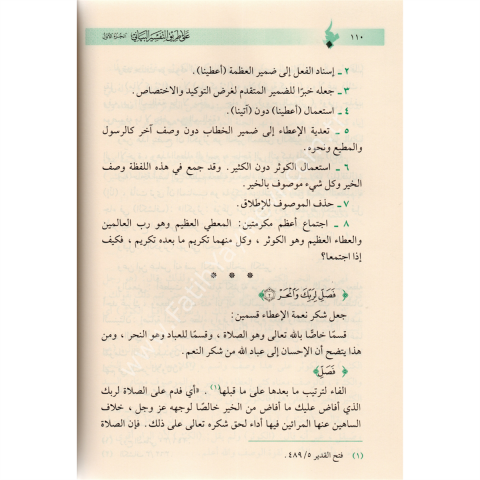 ١١٠ على طريق التفسير البياني الجزء الأول
٢ ـ إسناد الفعل إلى ضمير العظمة (أعطينا).
٣ ـ جعله خبرًا للضمير المتقدم لغرض التوكيد والاختصاص.
٤ ـ استعمال (أعطينا) دون (آتينا).
٥ ـ تعدية الإعطاء إلى ضمير الخطاب دون وصف آخر كالرسول
والمطيع ونحوه.
٦ ـ استعمال الكوثر دون الكثير. وقد جمع في هذه اللفظة وصف
الخير وكل شيء موصوف بالخير.
٧ ـ حذف الموصوف للإطلاق.
٨ ـ اجتماع أعظم مكرمتين: المعطي العظيم وهو رب العالمين
والعطاء العظيم وهو الكوثر ، وكل منهما تكريم ما بعده تكريم ، فكيف
إذا اجتمعا؟
* * *
﴿ فَصَلِّ لِرَبِّكَ وَٱنْحَرْ ۝٢ ﴾
جعل شكر نعمة الإعطاء قسمين:
قسمًا خاصًّا بالله تعالى وهو الصلاة ، وقسمًا للعباد وهو النحر ، ومن
هذا يتضح أن الإحسان إلى عباد الله من شكر النعم.
﴿ فَصَلِّ ﴾
الفاء لترتيب ما بعدها على ما قبلها(١) . «أي فدم على الصلاة لربك
الذي أفاض عليك ما أفاض من الخير خالصًا لوجهه عز وجل ، خلاف
الساهين عنها المرائين فيها أداء لحق شكره تعالى على ذلك. فإن الصلاة
(١) فتح القدير ٥/ ٤٨٩ .